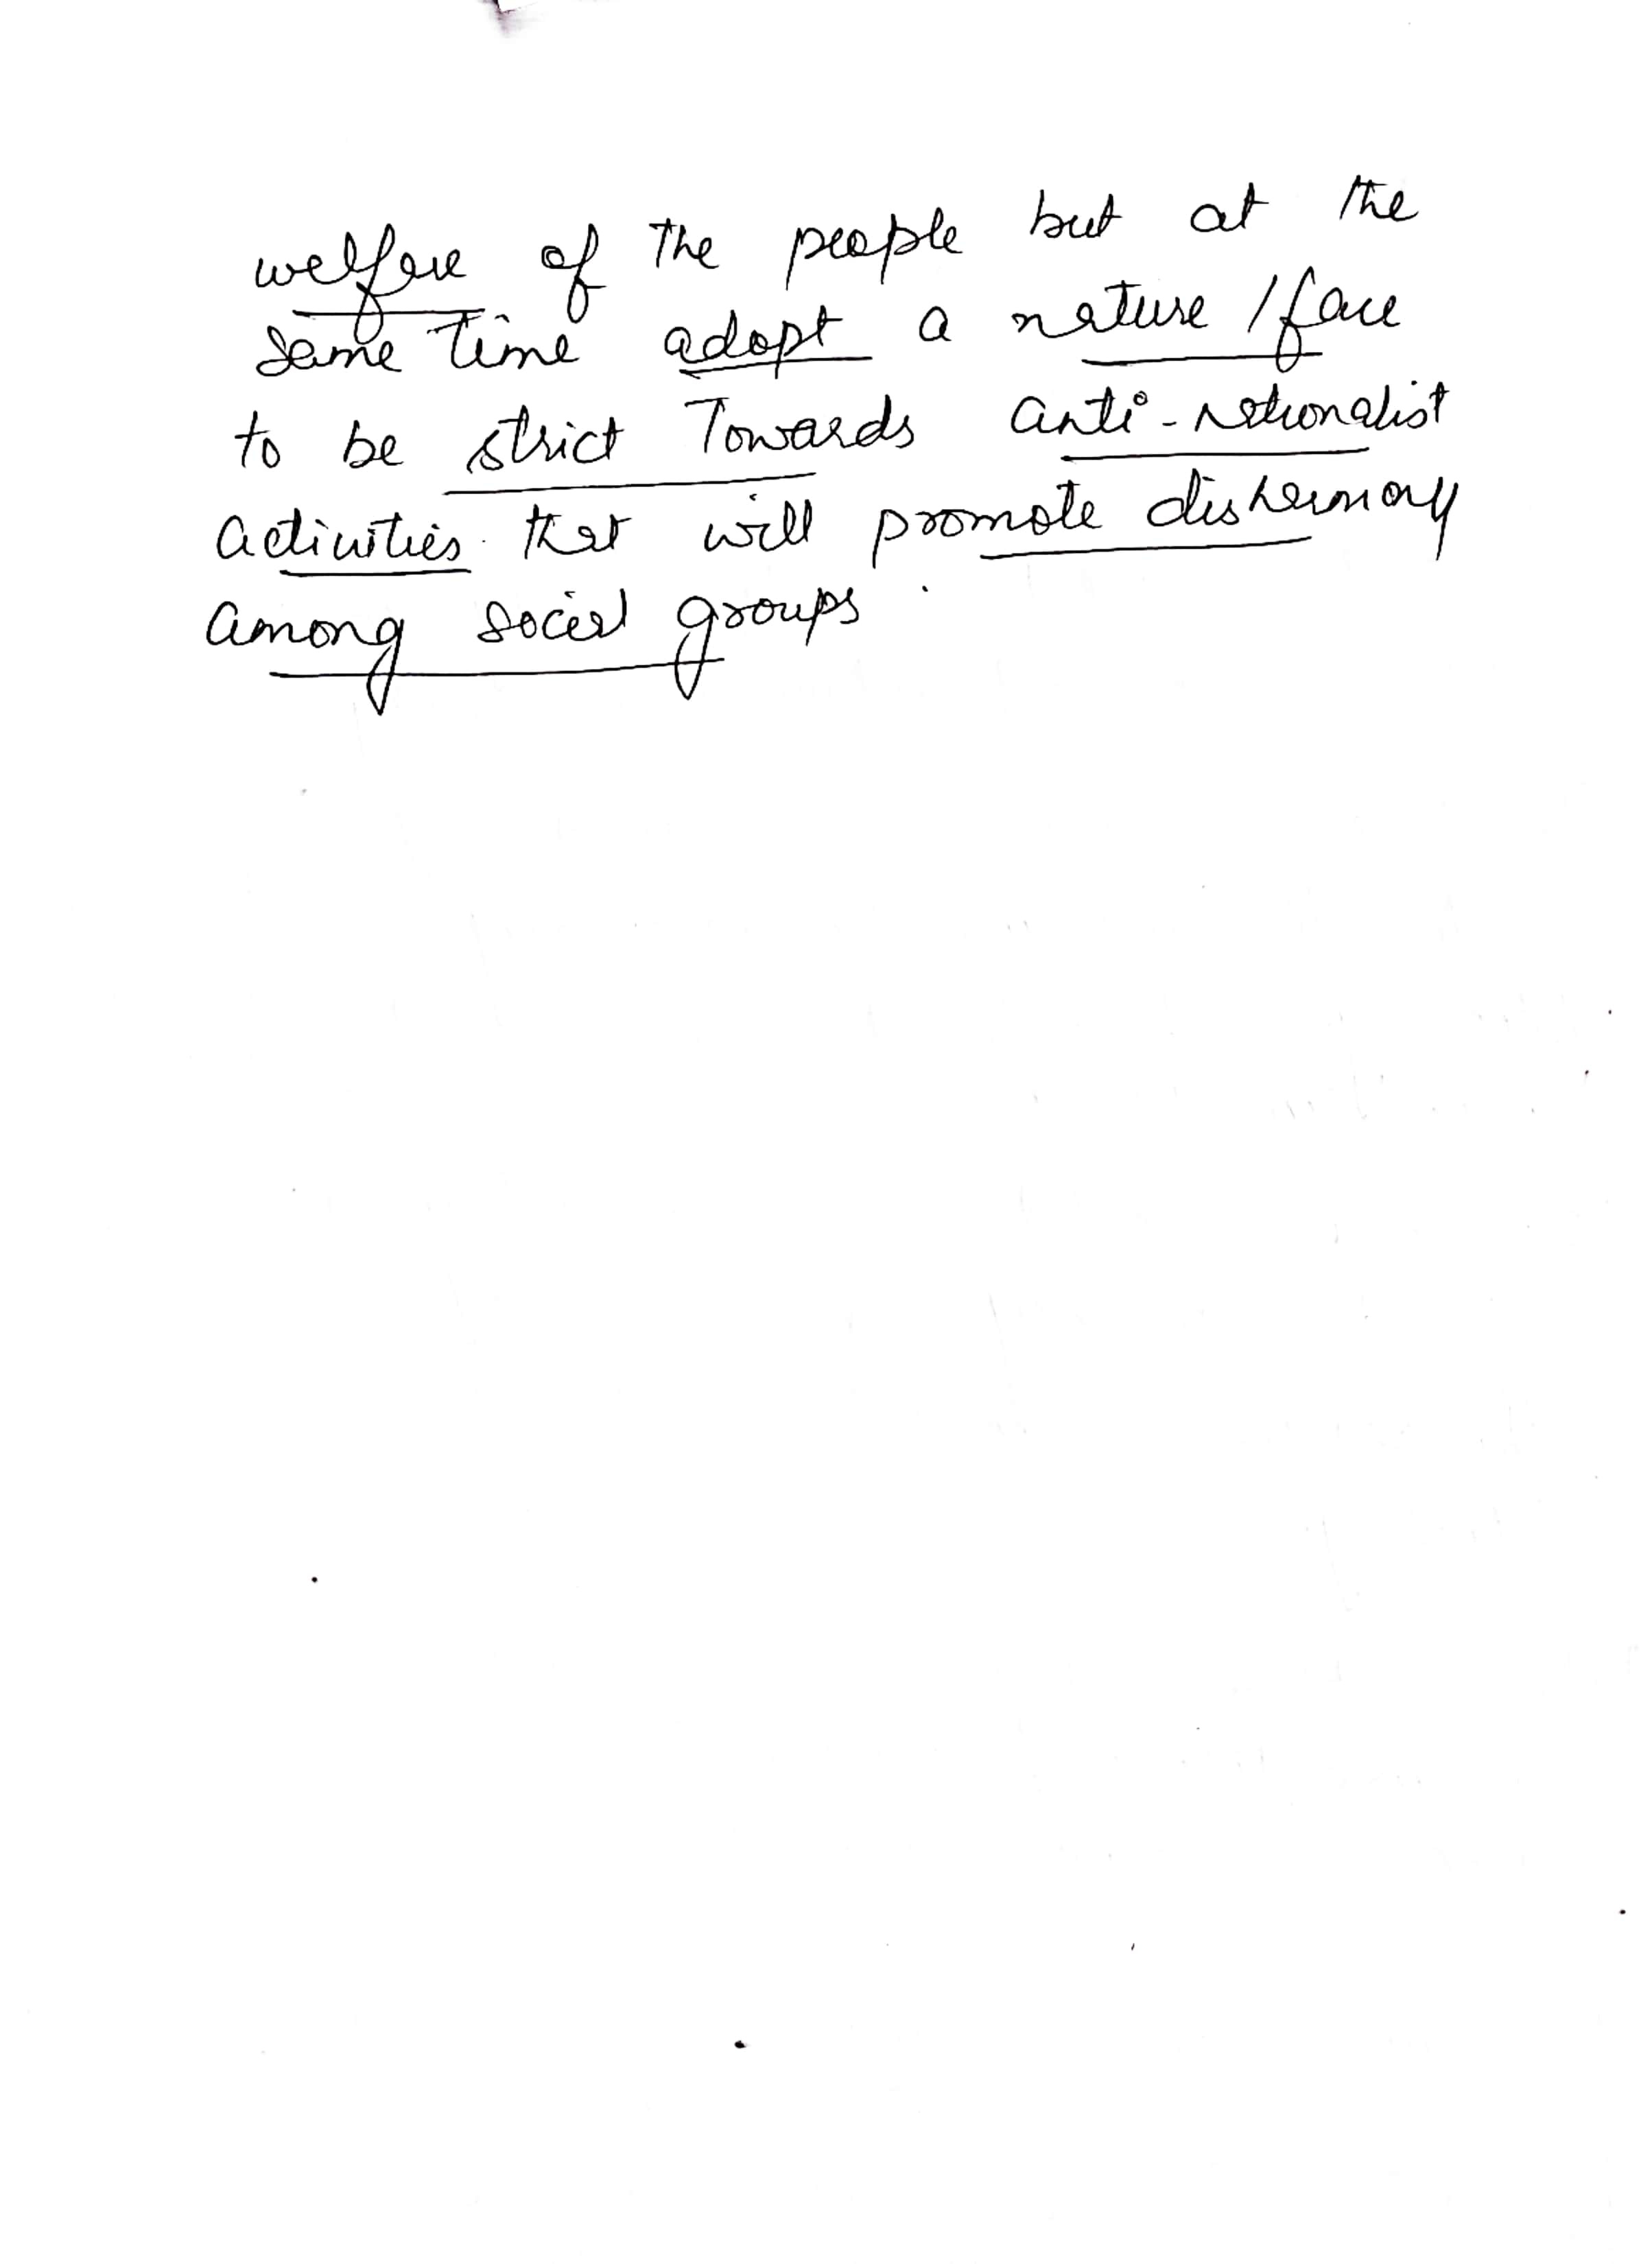 welfare of the people but at the
same time adopt a nature / face
to be strict towards anti-nationalist
activities that will promote disharmony
among social groups.